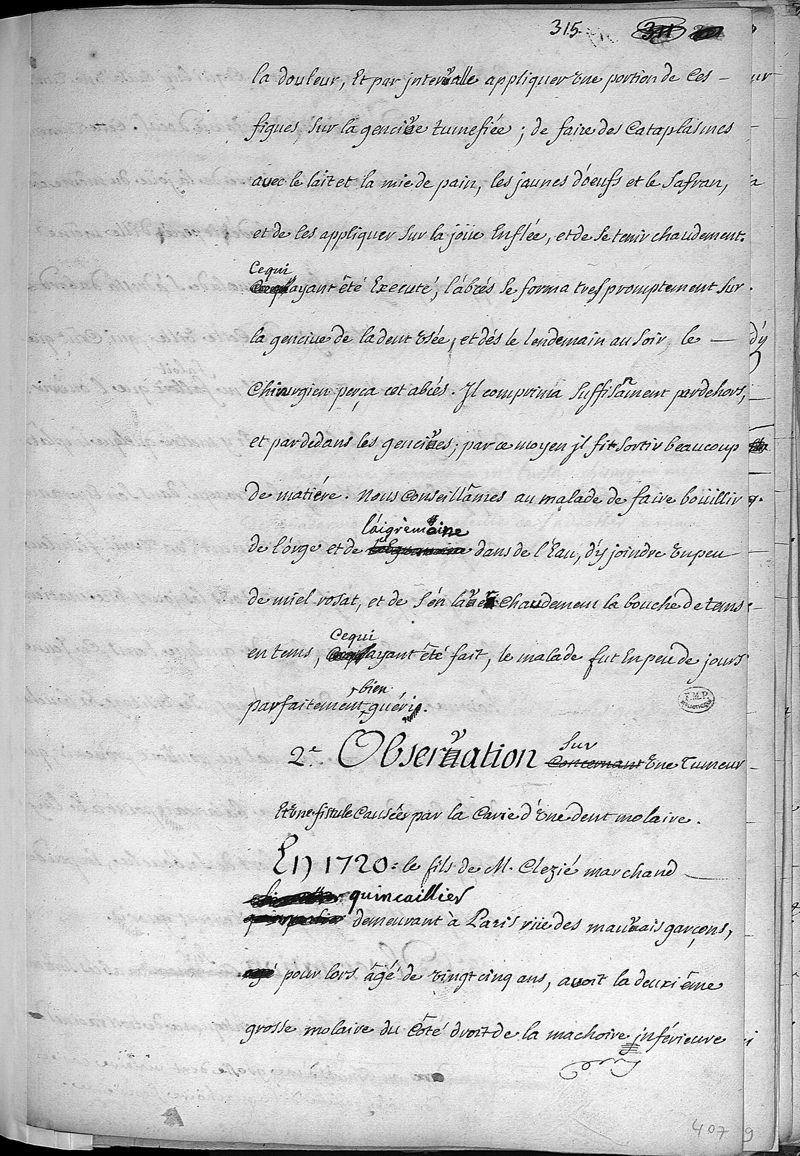 315
la douleur, et par jntervalle appliquer une portion de ces
figues, sur la gencive tumefiée ; de faire des Cataplasmes
avec le lait et la mie de pain, les jaunes d'oeufs et le safran,
et de les appliquer sur la joüe enflée, et de se tenir chaudement.
Cequi
ayant été executé, l'abcés se forma tres promptement sur
la gencive de la dent usée ; et dés le lendemain au soir, le
Chirurgien perça cet abcés. Il comprima suffisãment par dehors,
et par dedans les gencives ; par ce moyen jl fit sortir beaucoup
de matiére. Nous conseillâmes au malade de faire boüillir
l'aigremoine
de l'orge et de dans de l'Eau, d'y joindre un peu
de miel rosat, et de s'en laver chaudement la bouche de tems
Cequi
en tems, ayant été fait, le malade fut en peu de jours
bien
parfaitement guéri.
F.M.P.
sur
2e Observation Concernant une Tumeur
et une fistule causées par la Carie d'une dent molaire.
En 1720. le fils de M. Clezié marchand
quincaillier
demeurant à Paris rüe des mauvais garçons,
agé pour lors âgé de vingt cinq ans, avoit la deuxiéme
grosse molaire du côté droit de la machoire jnférieure
407